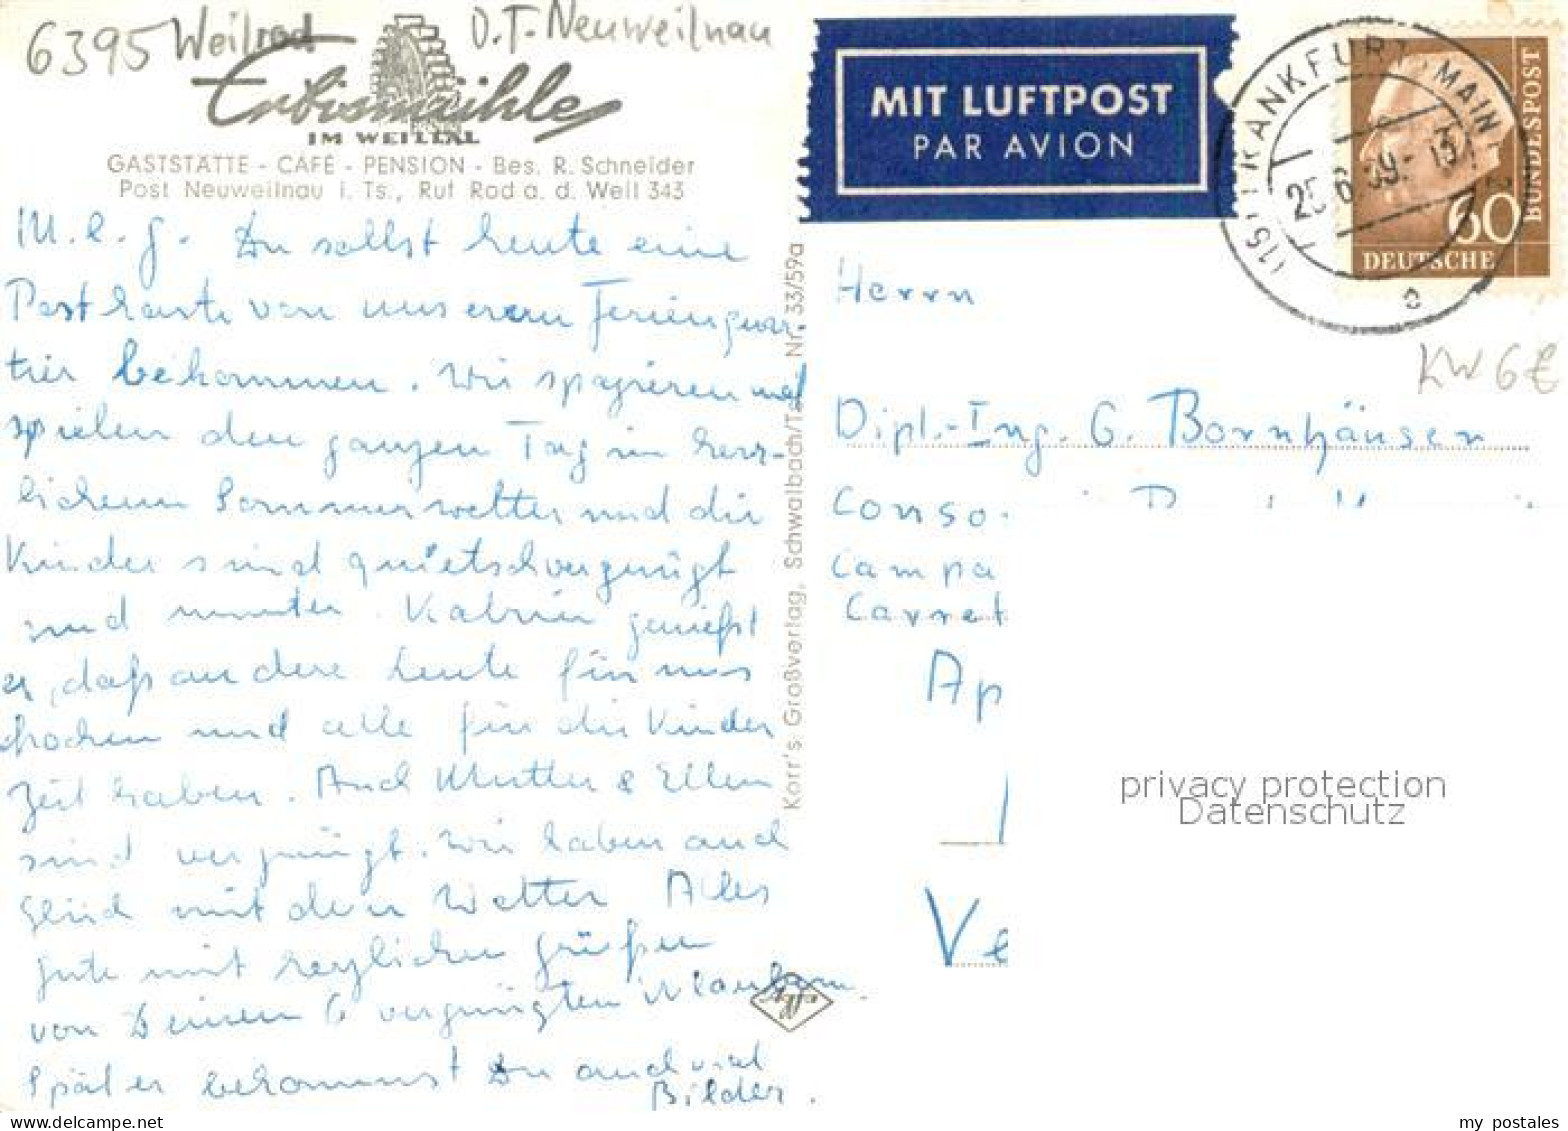 6395 Weilrod O.T. Neuweilnau
Erbismühle
IM WEILTAL
GASTSTÄTTE - CAFÉ - PENSION - Bes. R. Schneider
Post Neuweilnau i. Ts., Ruf Rod a. d. Weil 343
M. l. G. Du sollst heute eine
Postkarte von unserem Ferienquar-
tier bekommen. Wir spazieren und
spielen den ganzen Tag in herr-
lichem Sommerwetter und die
Kinder sind quietschvergnügt
und munter. Katrin genießt
es, daß andere Leute für uns
kochen und alle für die Kinder
Zeit haben. Auch Mutter & Ellen
sind vergnügt. Wir haben auch
Glück mit dem Wetter. Alles
gute mit herzlichen Grüßen
von Deinen 6 vergnügten
Später bekommst Du auch viel
Bilder.
Korr's Großverlag, Schwalbach/Ts. - Nr. 33/59a
MIT LUFTPOST
PAR AVION
(15) FRANKFURT (MAIN)
25.6.59.-13
e
60
DEUTSCHE
BUNDESPOST
KW 6€
Herrn
Dipl.-Ing. G. Bornhäusen
Conso
Campa
Carret
Ap
Ve
privacy protection
Datenschutz
my postales